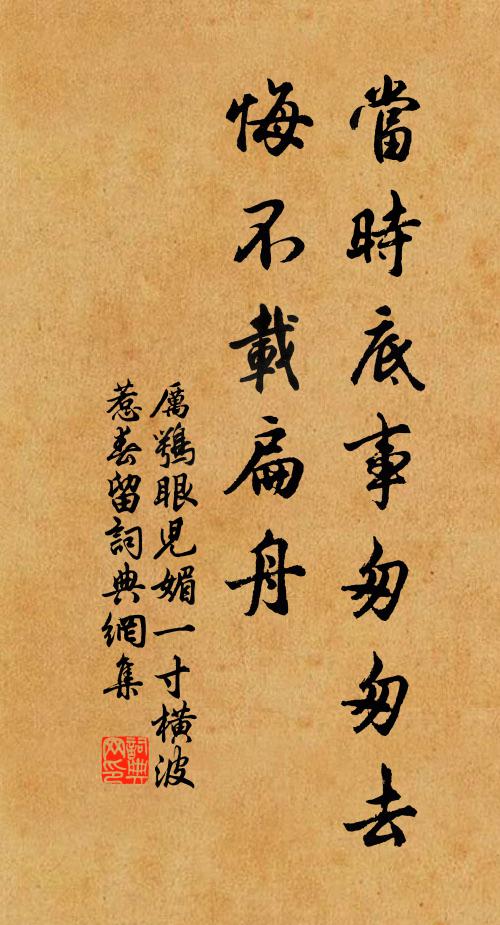 當時底事匆匆去
悔不載扁舟
厲鶚眼兒媚一寸橫波
惹春留詞典網集
詞典
网印